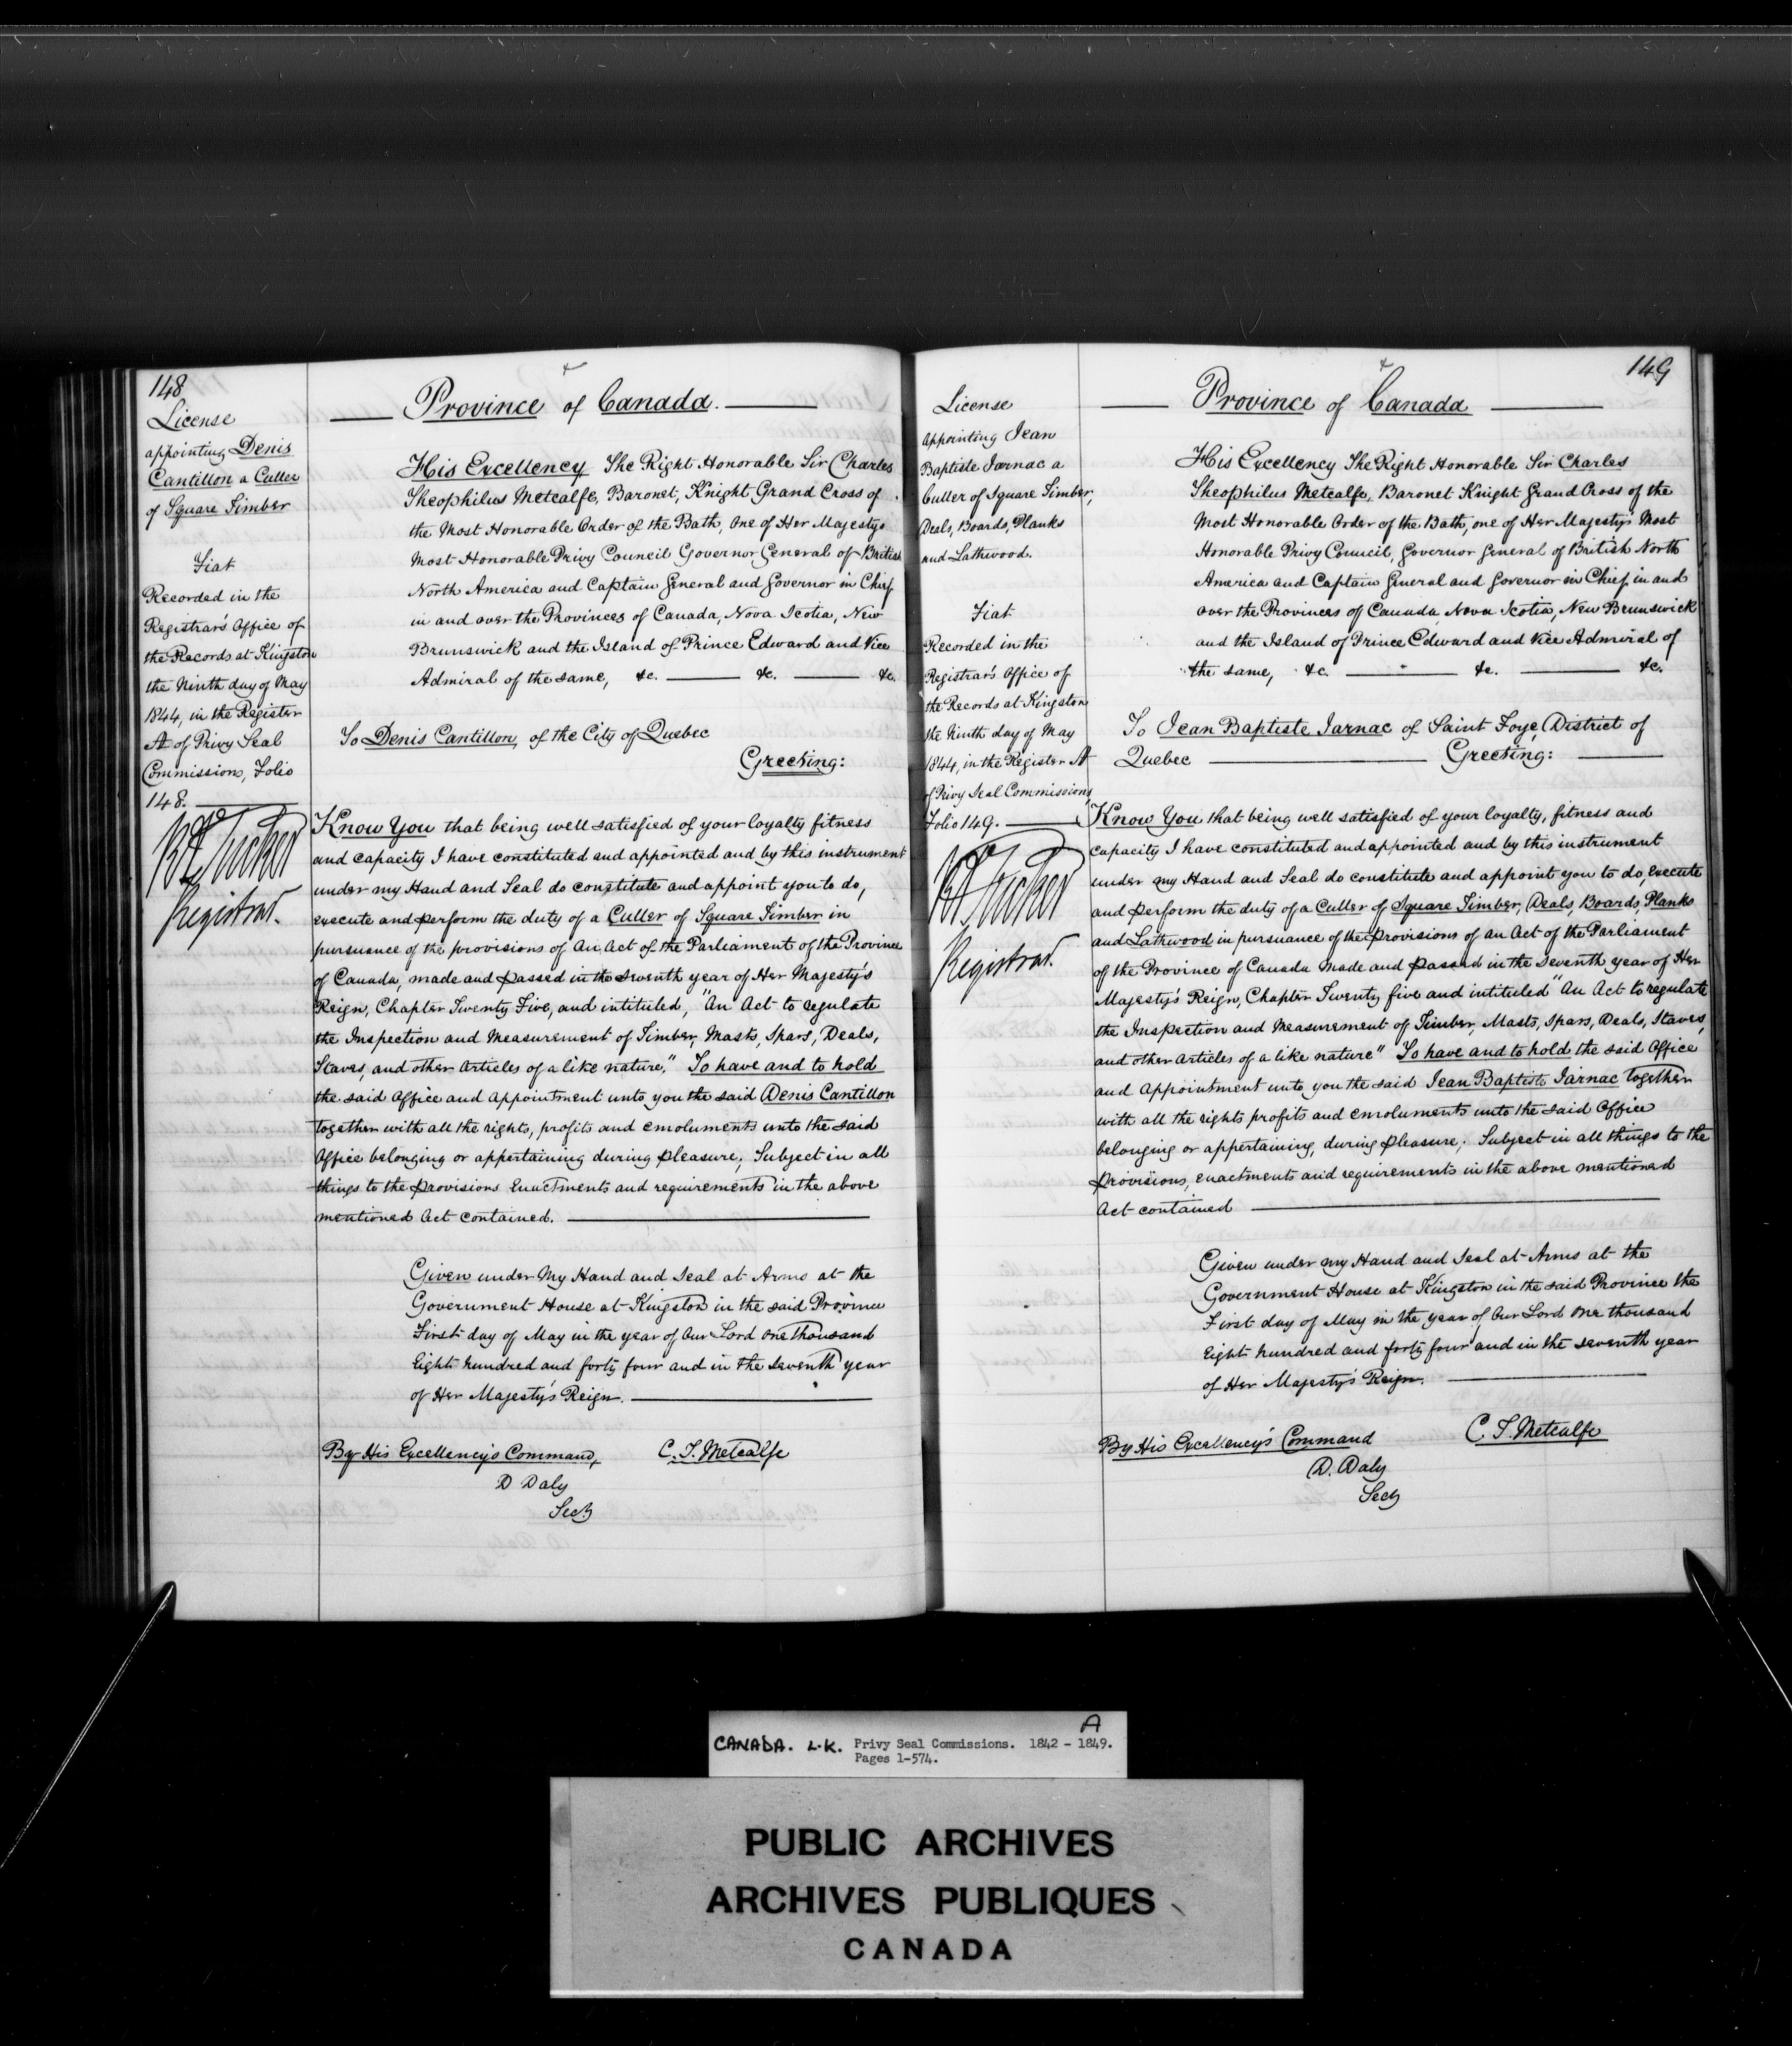 148
License
appointing Denis
Cantillon a Culler
of Square Timber
Fiat
Recorded in the
Registrar's Office of
the Records at Kingston
the Ninth day of May
1844, in the Register
A of Privy Seal
Commissions, Folio
148.
R A Tucker
Registrar.
Province of Canada.
His Excellency The Right Honorable Sir Charles
Theophilus Metcalfe, Baronet, Knight Grand Cross of
the Most Honorable Order of the Bath, One of Her Majestys
Most Honorable Privy Council Governor General of British
North America and Captain General and Governor in Chief
in and over the Provinces of Canada, Nova Scotia, New
Brunswick and the Island of Prince Edward and Vice
Admiral of the same, &c. &c. &c.
To Denis Cantillon, of the City of Quebec
Greeting:
Know You that being well satisfied of your loyalty fitness
and capacity I have constituted and appointed and by this instrument
under my Hand and Seal do constitute and appoint you to do,
execute and perform the duty of a Culler of Square Timber in
pursuance of the provisions of An Act of the Parliament of the Province
of Canada, made and passed in the seventh year of Her Majesty's
Reign, Chapter Twenty Five, and intituled, "An Act to regulate
the Inspection and Measurement of Timber, Masts, Spars, Deals,
Staves, and other Articles of a like nature." To have and to hold
the said Office and Appointment unto you the said Denis Cantillon
together with all the rights, profits and emoluments unto the said
Office belonging or appertaining during pleasure; Subject in all
things to the provisions Enactments and requirements in the above
mentioned Act contained.
Given under My Hand and Seal at Arms at the
Government House at Kingston in the said Province
First day of May in the year of Our Lord One thousand
Eight hundred and forty four and in the seventh year
of Her Majesty's Reign.
By His Excellency's Command, C. T. Metcalfe
D Daly
Secy
149
License
Appointing Jean
Baptiste Jarnac a
Culler of Square Timber,
Deals, Boards, Planks
and Lathwood.
Fiat
Recorded in the
Registrar's Office of
the Records at Kingston
the Ninth day of May
1844, in the Register A
of Privy Seal Commissions,
Folio 149.
R A Tucker
Registrar.
Province of Canada
His Excellency The Right Honorable Sir Charles
Theophilus Metcalfe, Baronet Knight Grand Cross of the
Most Honorable Order of the Bath, one of Her Majesty's Most
Honorable Privy Council, Governor General of British North
America and Captain General and Governor in Chief in and
over the Provinces of Canada, Nova Scotia, New Brunswick
and the Island of Prince Edward and Vice Admiral of
the same, &c. &c. &c.
To Jean Baptiste Jarnac of Saint Foye, District of
Quebec Greeting:
Know You that being well satisfied of your loyalty, fitness and
capacity I have constituted and appointed and by this instrument
under my Hand and Seal do constitute and appoint you to do, execute
and perform the duty of a Culler of Square Timber, Deals, Boards, Planks
and Lathwood in pursuance of the provisions of an Act of the Parliament
of the Province of Canada made and passed in the seventh year of Her
Majesty's Reign, Chapter Twenty five and intituled "An Act to regulate
the Inspection and Measurement of Timber, Masts, Spars, Deals, Staves,
and other articles of a like nature" To have and to hold the said Office
and Appointment unto you the said Jean Baptiste Jarnac together
with all the rights profits and emoluments unto the said Office
belonging or appertaining, during pleasure; Subject in all things to the
provisions, enactments and requirements in the above mentioned
Act contained
Given under my Hand and Seal at Arms at the
Government House at Kingston in the said Province the
First day of May in the year of Our Lord One thousand
Eight hundred and forty four and in the seventh year
of Her Majesty's Reign.
By His Excellency's Command C. T. Metcalfe
D. Daly
Secy
A
CANADA. L.K. Privy Seal Commissions. 1842 - 1849.
Pages 1-574.
PUBLIC ARCHIVES
ARCHIVES PUBLIQUES
CANADA